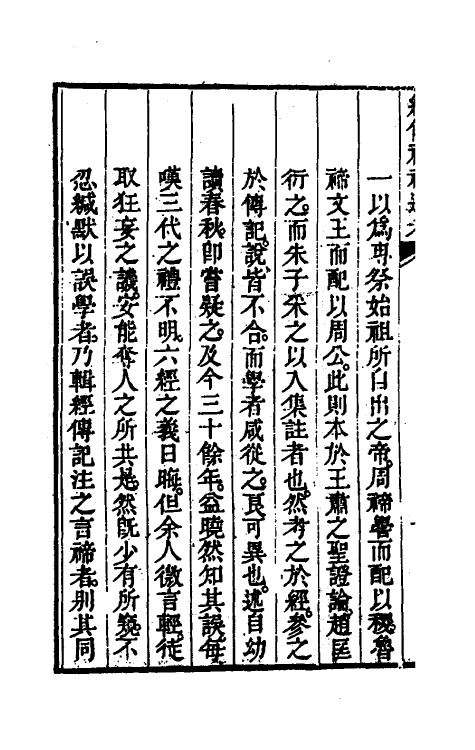 一以爲専祭始祖所自出之帝周禘嚳而配以稷魯
禘文王而配以周公此則本於王肅之聖證論趙匡
衍之而朱子采之以入集註者也然考之於經參之
於傳記說皆不合而學者咸從之良可異也述自幼
讀春秋卽嘗疑之及今三十餘年益曉然知其誤每
嘆三代之禮不明六經之義日晦但余人微言輕徒
取狂妄之譏安能奪人之所共是然旣少有所窺不
忍緘默以誤學者乃輯經傳記注之言禘者別其同